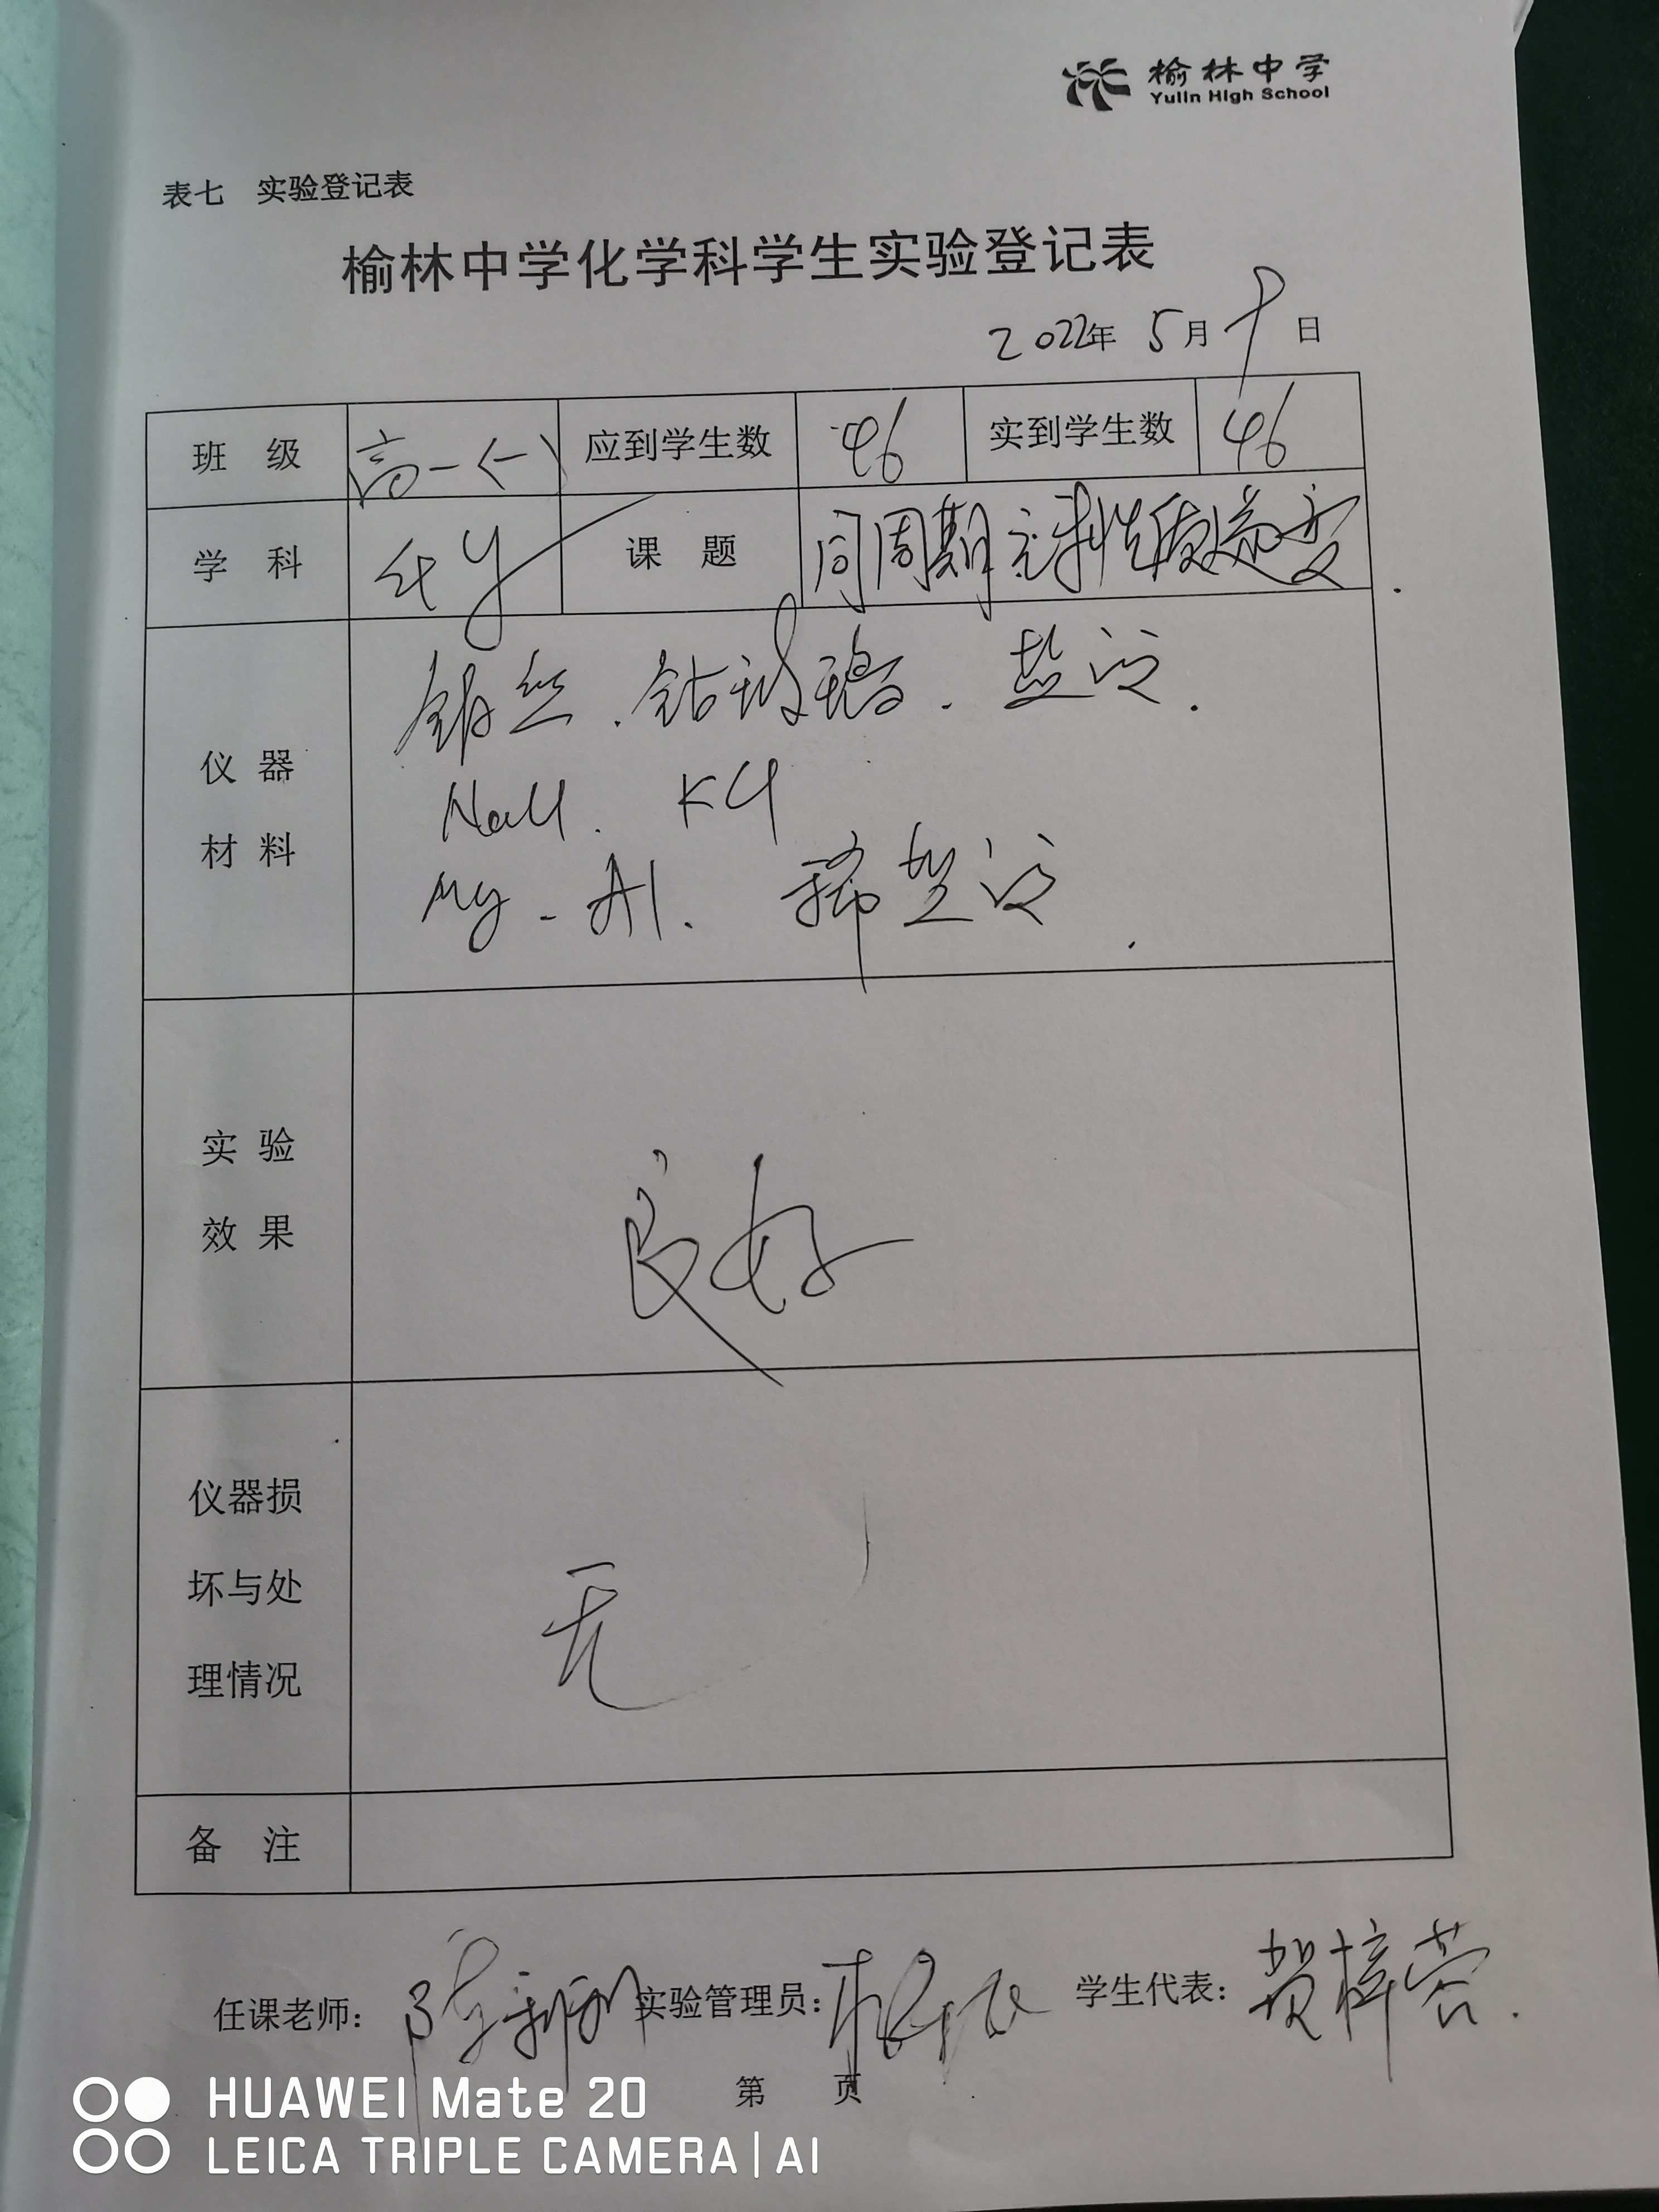 榆林中学
Yulin High School
表七 实验登记表
榆林中学化学科学生实验登记表
2022年 5月 日
班 级 高一(一) 应到学生数 46 实到学生数 46
学 科 化学 课 题 同周期元素性质递变
仪 器
材 料
铂丝、钴玻璃、盐酸、
NaCl、KCl
Mg、Al、稀盐酸
实 验
效 果
良好
仪器损
坏与处
理情况
无
备 注
任课老师: 实验管理员: 学生代表: 贺梓蓉
第 页
HUAWEI Mate 20
LEICA TRIPLE CAMERA | AI